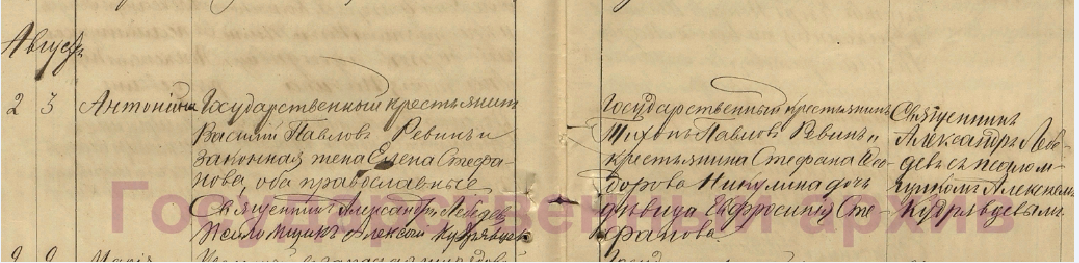 Августъ
2 3 Антонина
Государственный крестьянинъ
Василій Павловъ Ревинъ и
законная жена Елена Стефа-
нова, оба православные
Священникъ Александръ Лебедев
Псаломщикъ Алексей Кудрявцевъ
Государственный крестьянинъ
Тихонъ Павловъ Ревинъ и
крестьянина Стефана Ѳео-
дорова Никулина дочь
девица Евфросинія Сте-
фанова.
Священникъ
Александръ Лебе-
девъ съ псалом-
щикомъ Алексеемъ
Кудрявцевымъ
Государственный архив
Марія